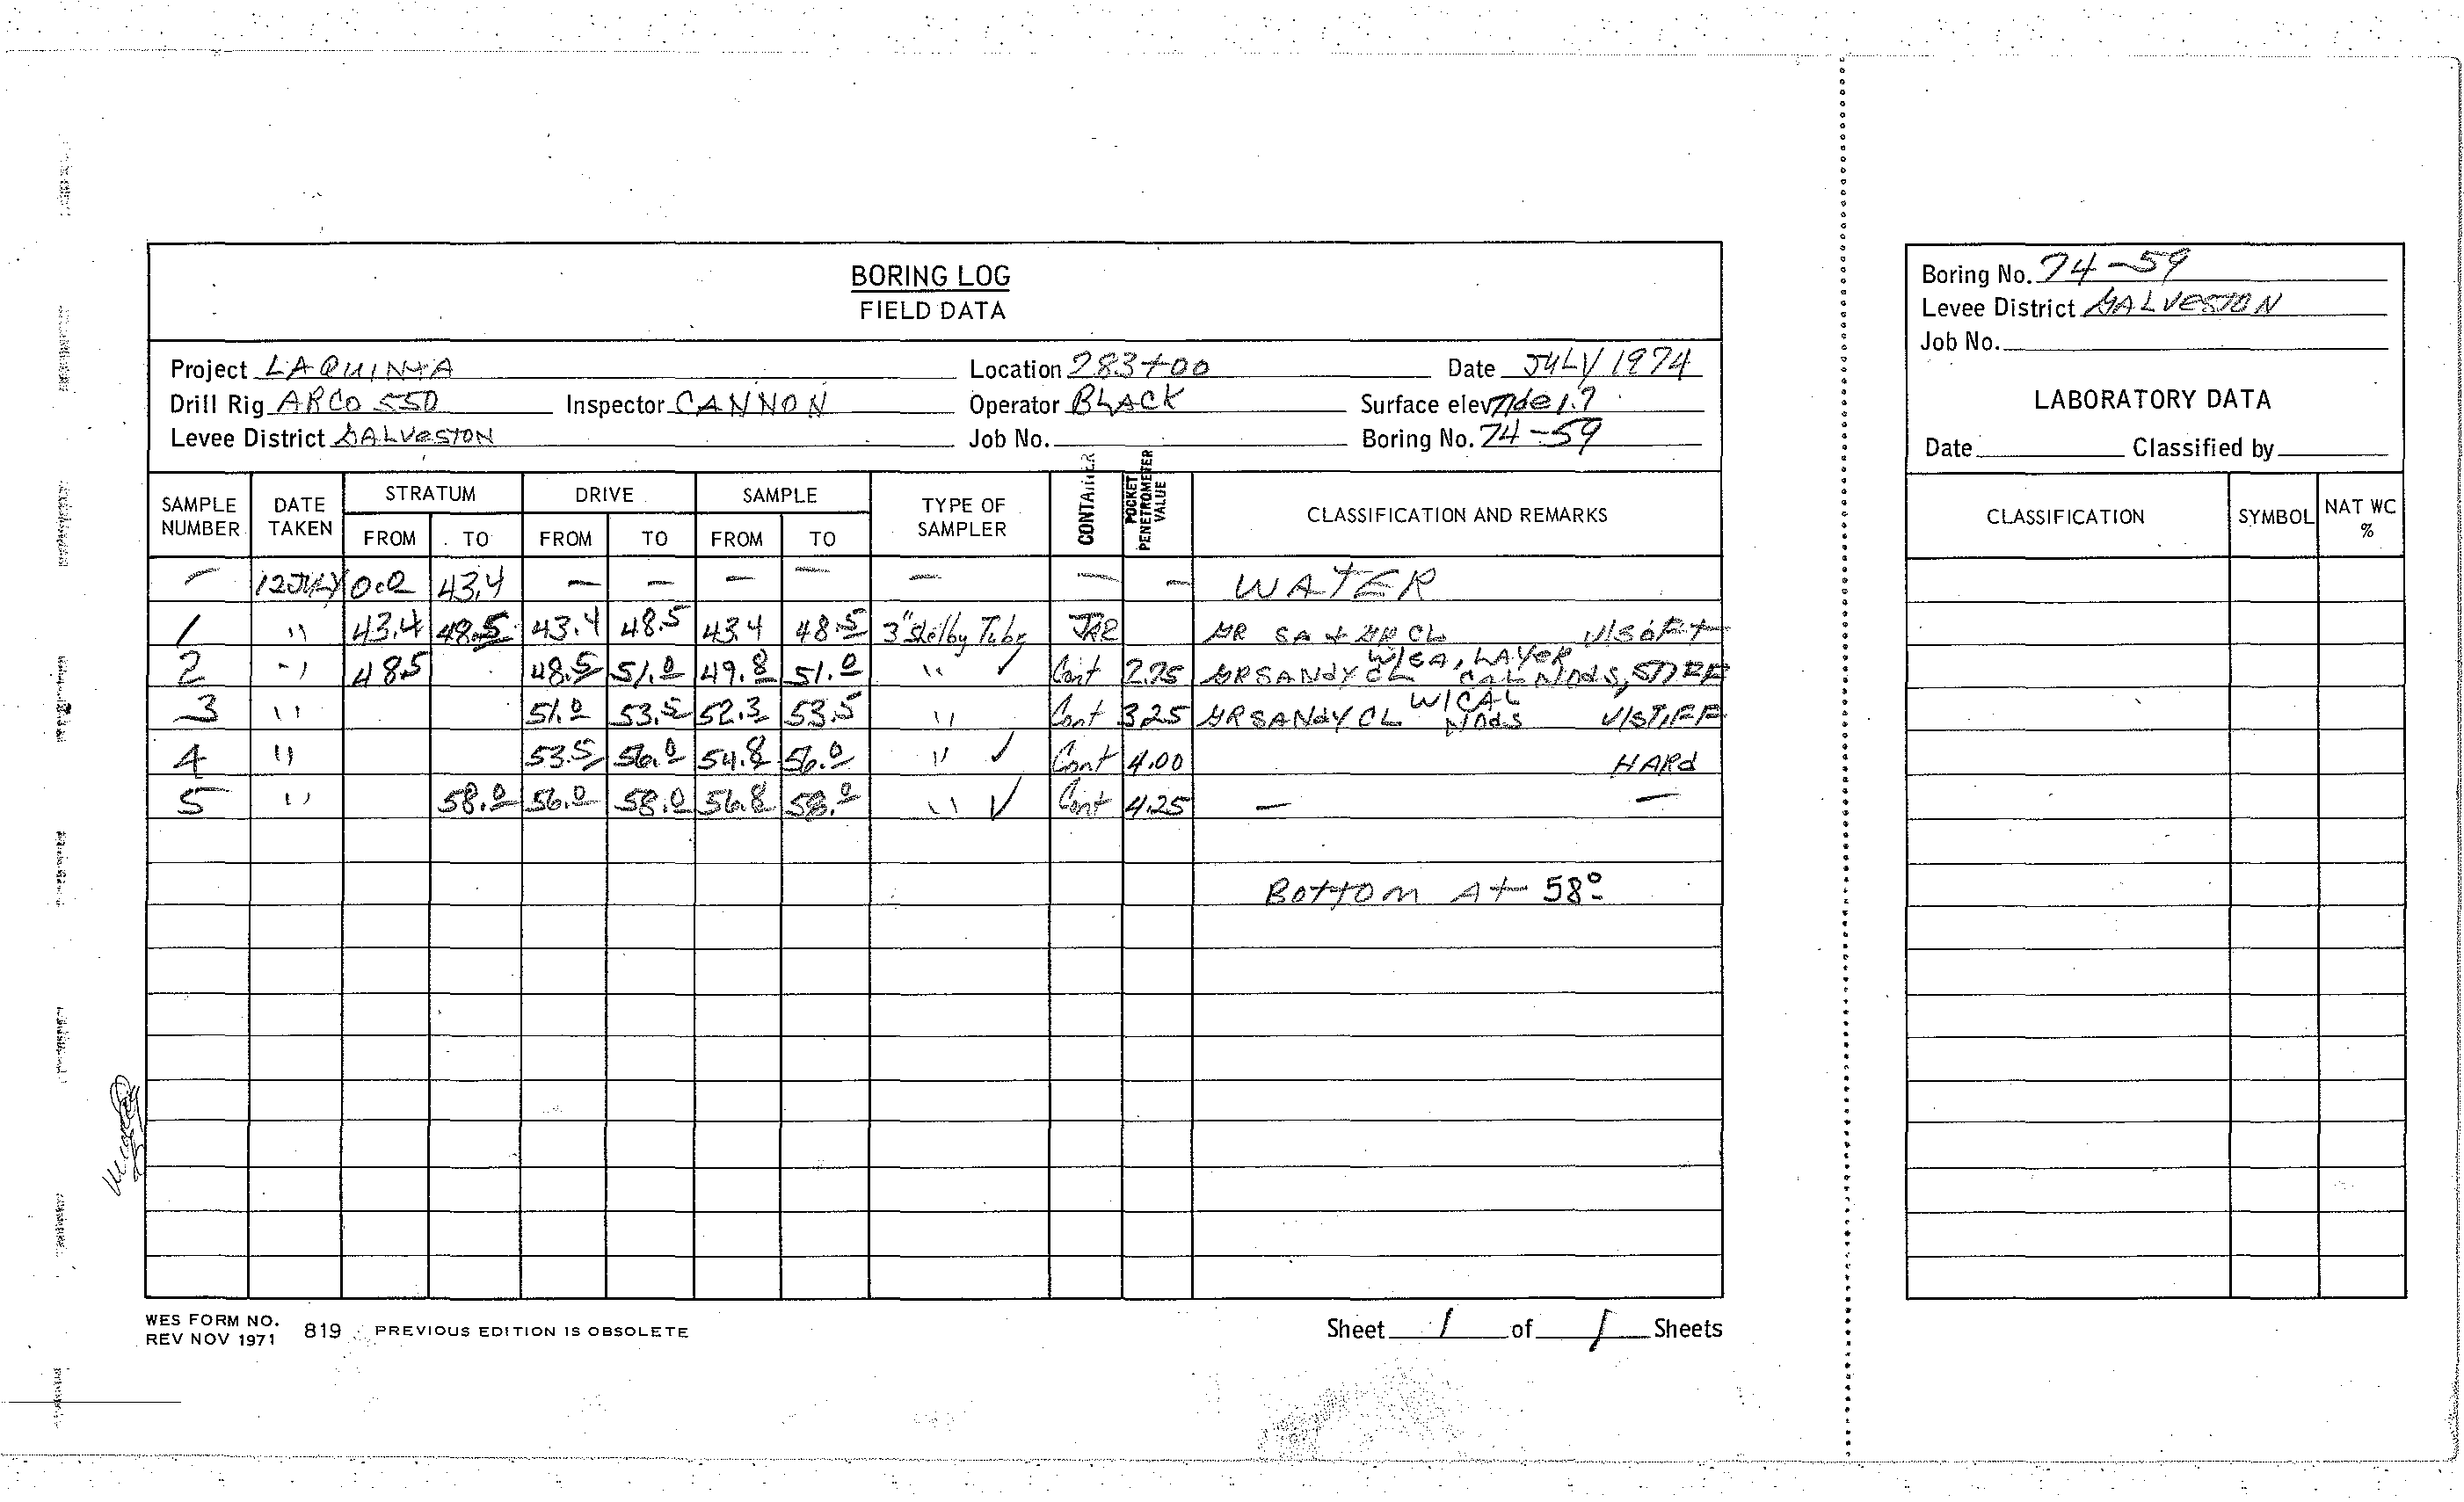 BORING LOG
FIELD DATA
Project LAQUINTA Location 283+00 Date JULY 1974
Drill Rig ARCO 550 Inspector CANNON Operator BLACK Surface elev Tide 1.7
Levee District GALVESTON Job No. Boring No. 74-59
SAMPLE NUMBER DATE TAKEN STRATUM FROM TO DRIVE FROM TO SAMPLE FROM TO TYPE OF SAMPLER CONTAINER POCKET PENETROMETER VALUE CLASSIFICATION AND REMARKS
- 12 JULY 0.0 43.4 - - - - - - - WATER
1 " 43.4 48.5 43.4 48.5 43.4 48.5 3" Shelby Tube JAR GR SA + GR CL V/SOFT
2 " 48.5 48.5 51.0 49.8 51.0 " ✓ Cont 2.75 GR SANDY CL W/SA, LAYER CAL NODS, STIFF
3 " 51.0 53.5 52.3 53.5 " Cont 3.25 GR SANDY CL W/CAL NODS V/STIFF
4 " 53.5 56.0 54.8 56.0 " ✓ Cont 4.00 HARD
5 " 58.0 56.0 58.0 56.8 58.0 " ✓ Cont 4.25 - -
BOTTOM At 58.0
WES FORM NO. 819 PREVIOUS EDITION IS OBSOLETE
REV NOV 1971
Sheet 1 of 1 Sheets
Boring No. 74-59
Levee District GALVESTON
Job No.
LABORATORY DATA
Date Classified by
CLASSIFICATION SYMBOL NAT WC %